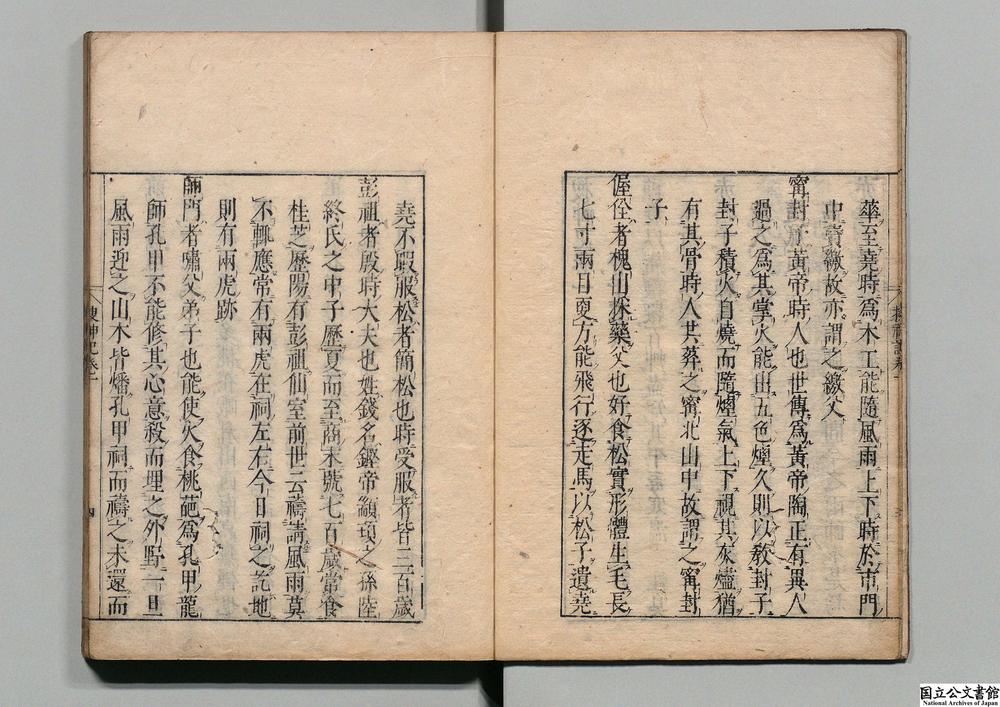 華至堯時爲木工能隨風雨上下時於市門
中賣繳故亦謂之繳父
甯封子黃帝時人也世傳爲黃帝陶正有異人
過之爲其掌火能出五色煙久則以教封子
封子積火自燒而隨煙氣上下視其灰燼猶
有其骨時人共葬之甯北山中故謂之甯封
子
偓佺者槐山採藥父也好食松實形體生毛長
七寸兩目更方能飛行逐走馬以松子遺堯
堯不暇服松者簡松也時受服者皆三百歲
彭祖者殷時大夫也姓錢名鏗帝顓頊之孫陸
終氏之中子歷夏而至商末號七百歲常食
桂芝歷陽有彭祖仙室前世云禱請風雨莫
不輒應常有兩虎在祠左右今日祠之訖地
則有兩虎跡
師門者嘯父弟子也能使火食桃葩爲孔甲龍
師孔甲不能修其心意殺而埋之外野一旦
風雨迎之山木皆燔孔甲祠而禱之未還而
搜神記卷一
四
国立公文書館
National Archives of Japan